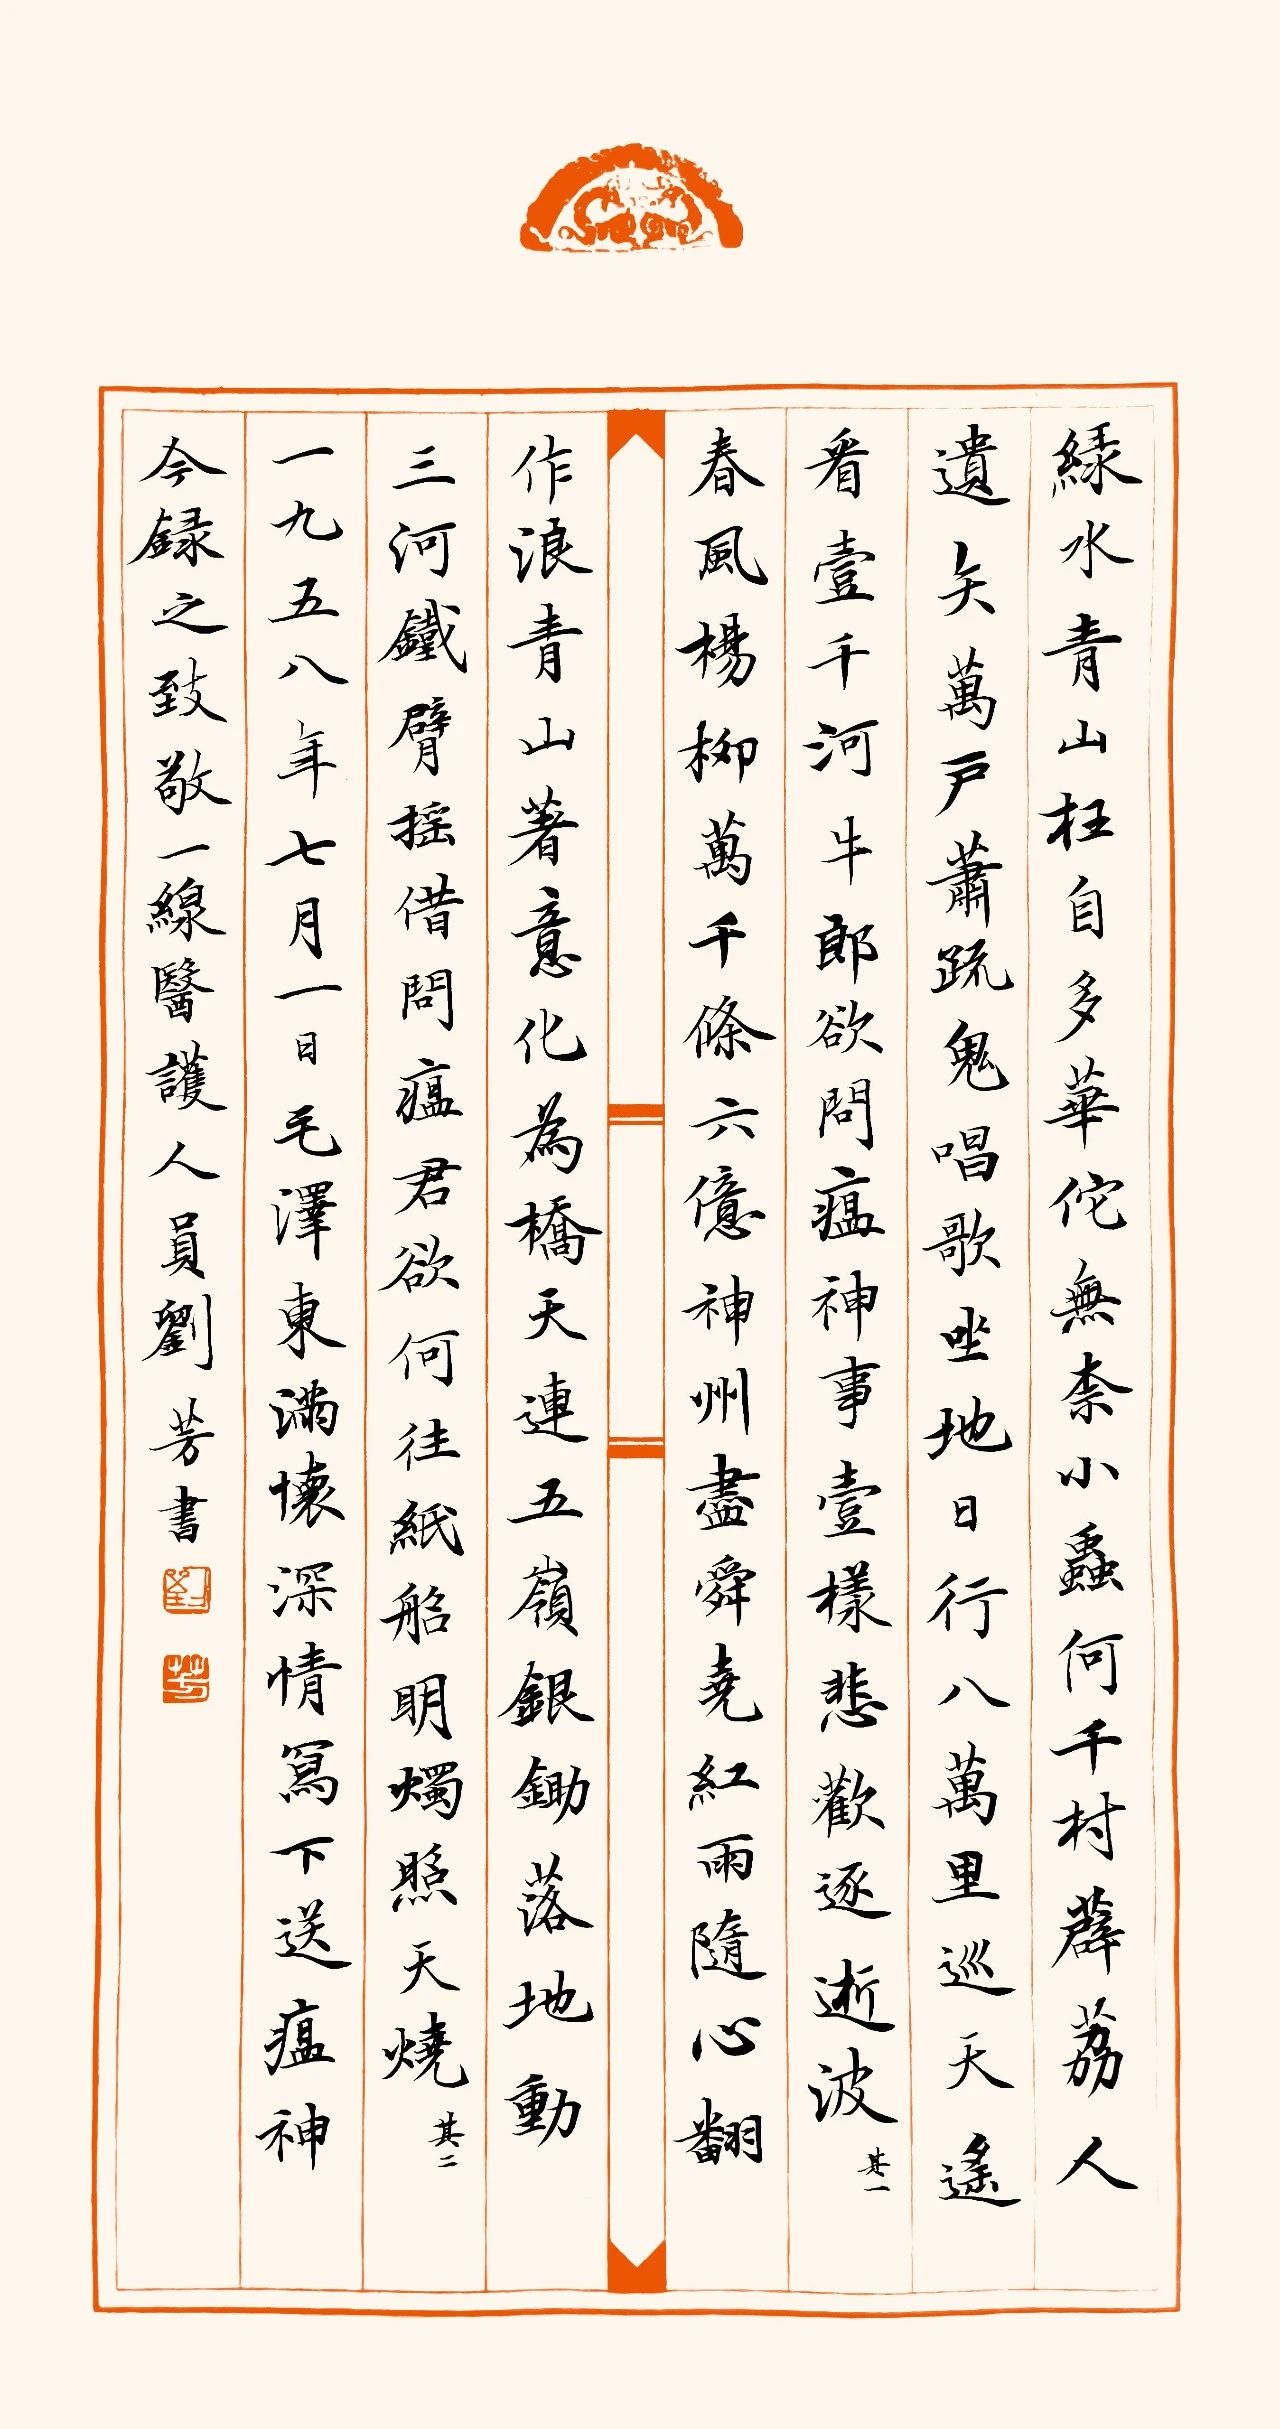 緑水青山枉自多華佗無柰小蟲何千村薜荔人
遺矢萬戸蕭疏鬼唱歌坐地日行八萬里巡天遙
看壹千河牛郎欲問瘟神事壹樣悲歡逐逝波其一
春風楊柳萬千條六億神州盡舜堯紅雨隨心翻
作浪青山著意化為橋天連五嶺銀鋤落地動
三河鐵臂摇借問瘟君欲何往紙船明燭照天燒其二
一九五八年七月一日毛澤東滿懷深情寫下送瘟神
今録之致敬一線醫護人員劉芳書
劉
芳